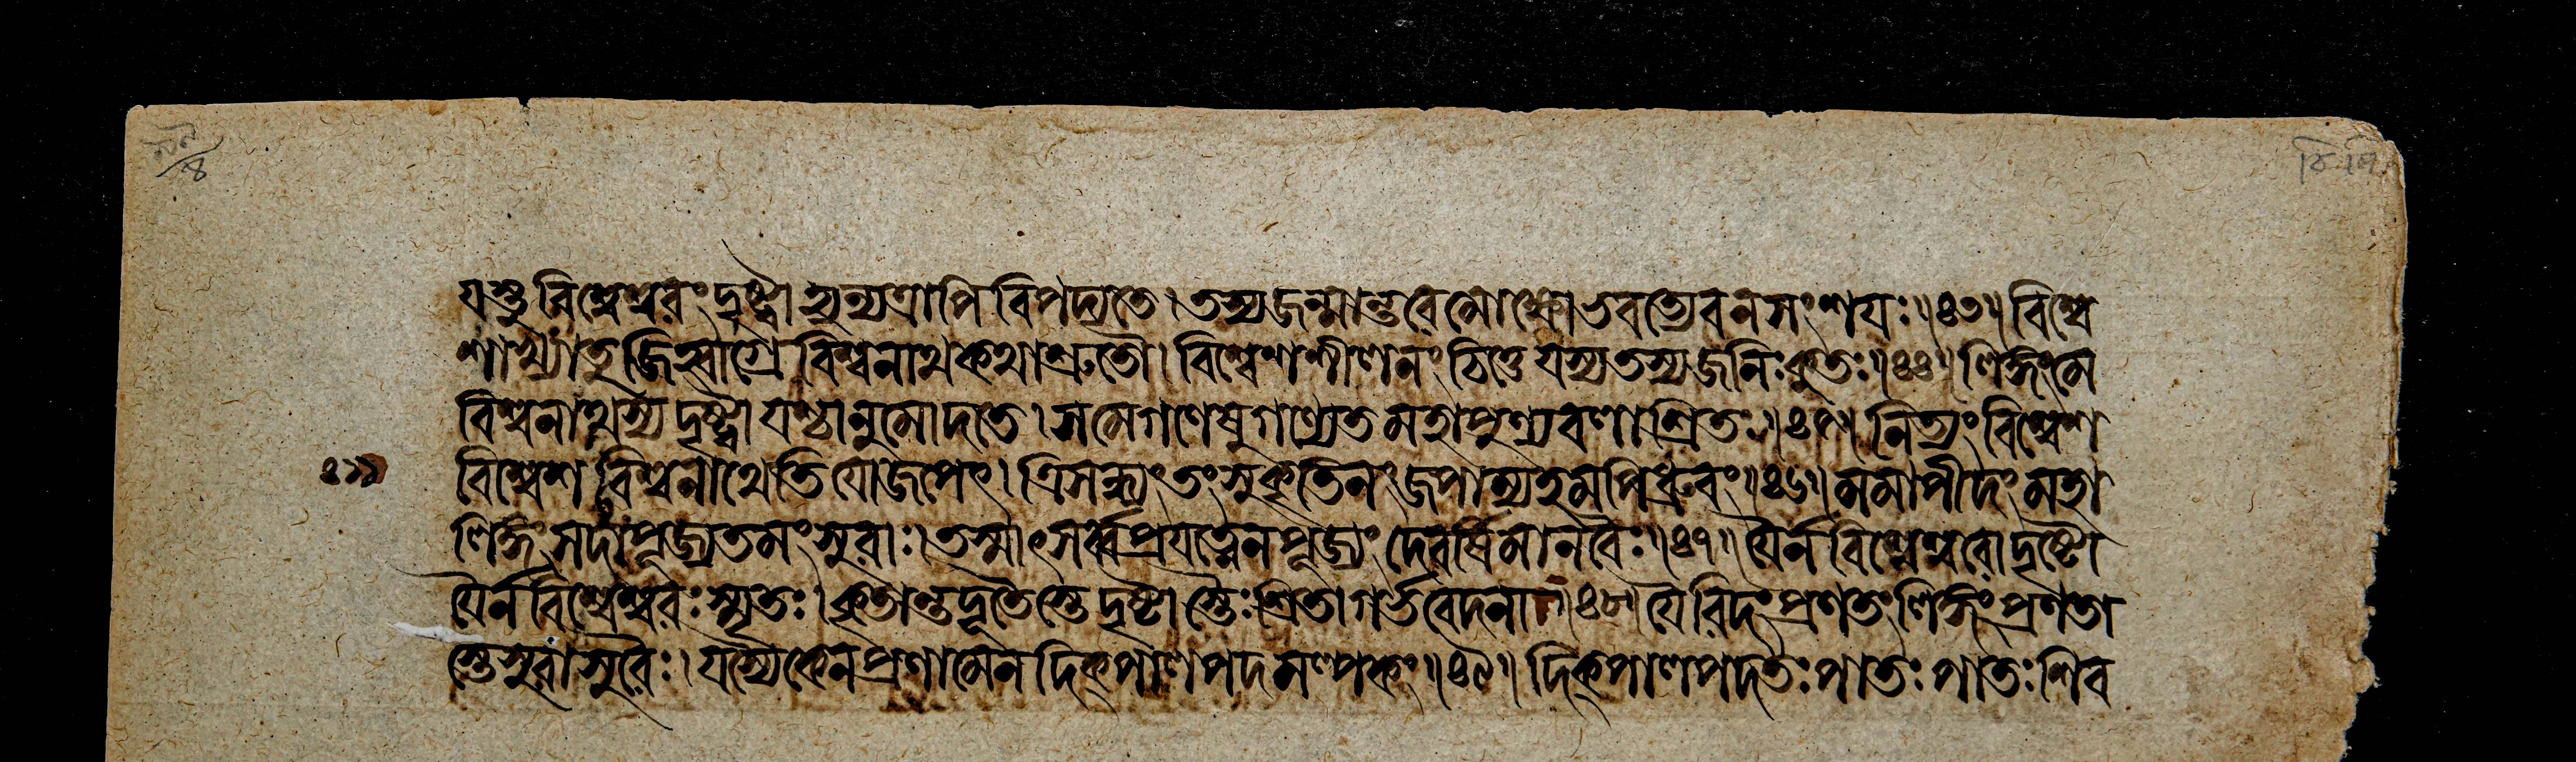 যস্তু বিশ্বেশ্বরং দৃষ্ট্বা হ্যন্যত্রাপি বিপদ্যতে। তস্য জন্মান্তরে মোক্ষো ভবত্যেব ন সংশযঃ॥৪৩॥ বিশ্বে
শাখ্যা তু জিহ্বাগ্রে বিশ্বনাথকথা শ্রুতৌ। বিশ্বেশশীলনং চিত্তে যস্য তস্য জনিঃ কুতঃ॥৪৪॥ লিঙ্গং মে
বিশ্বনাথস্য দৃষ্ট্বা যশ্চানুমোদতে। স মে গণেষু গণ্যেত মহাপুণ্যবলাশ্রিতঃ॥৪৫॥ নিত্যং বিশ্বেশ
বিশ্বেশ বিশ্বনাথেতি যো জপেৎ। ত্রিসন্ধ্যং তং সুকৃতিনং জপাম্যহমপি ধ্রুবং॥৪৬॥ মমাপীদং মহা
লিঙ্গং সদা পূজ্যতমং সুরাঃ। তস্মাৎ সর্ব্বপ্রযত্নেন পূজ্যং দেবর্ষিমানবৈঃ॥৪৭॥ যৈর্ন বিশ্বেশ্বরো দৃষ্টো
যৈর্ন বিশ্বেশ্বরঃ স্মৃতঃ। কৃতান্তদূতৈস্তে দৃষ্টাস্তৈঃ শ্রিতা গর্ভবেদনা॥৪৮॥ যৈরিদং প্রণতং লিঙ্গং প্রণতা
স্তে সুরাসুরৈঃ। যস্যৈকেন প্রণামেন দিক্পালপদমল্পকং॥৪৯॥ দিক্পালপদতঃ পাতঃ পাতঃ শিব